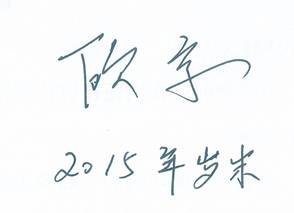 欧宁
2015年岁末